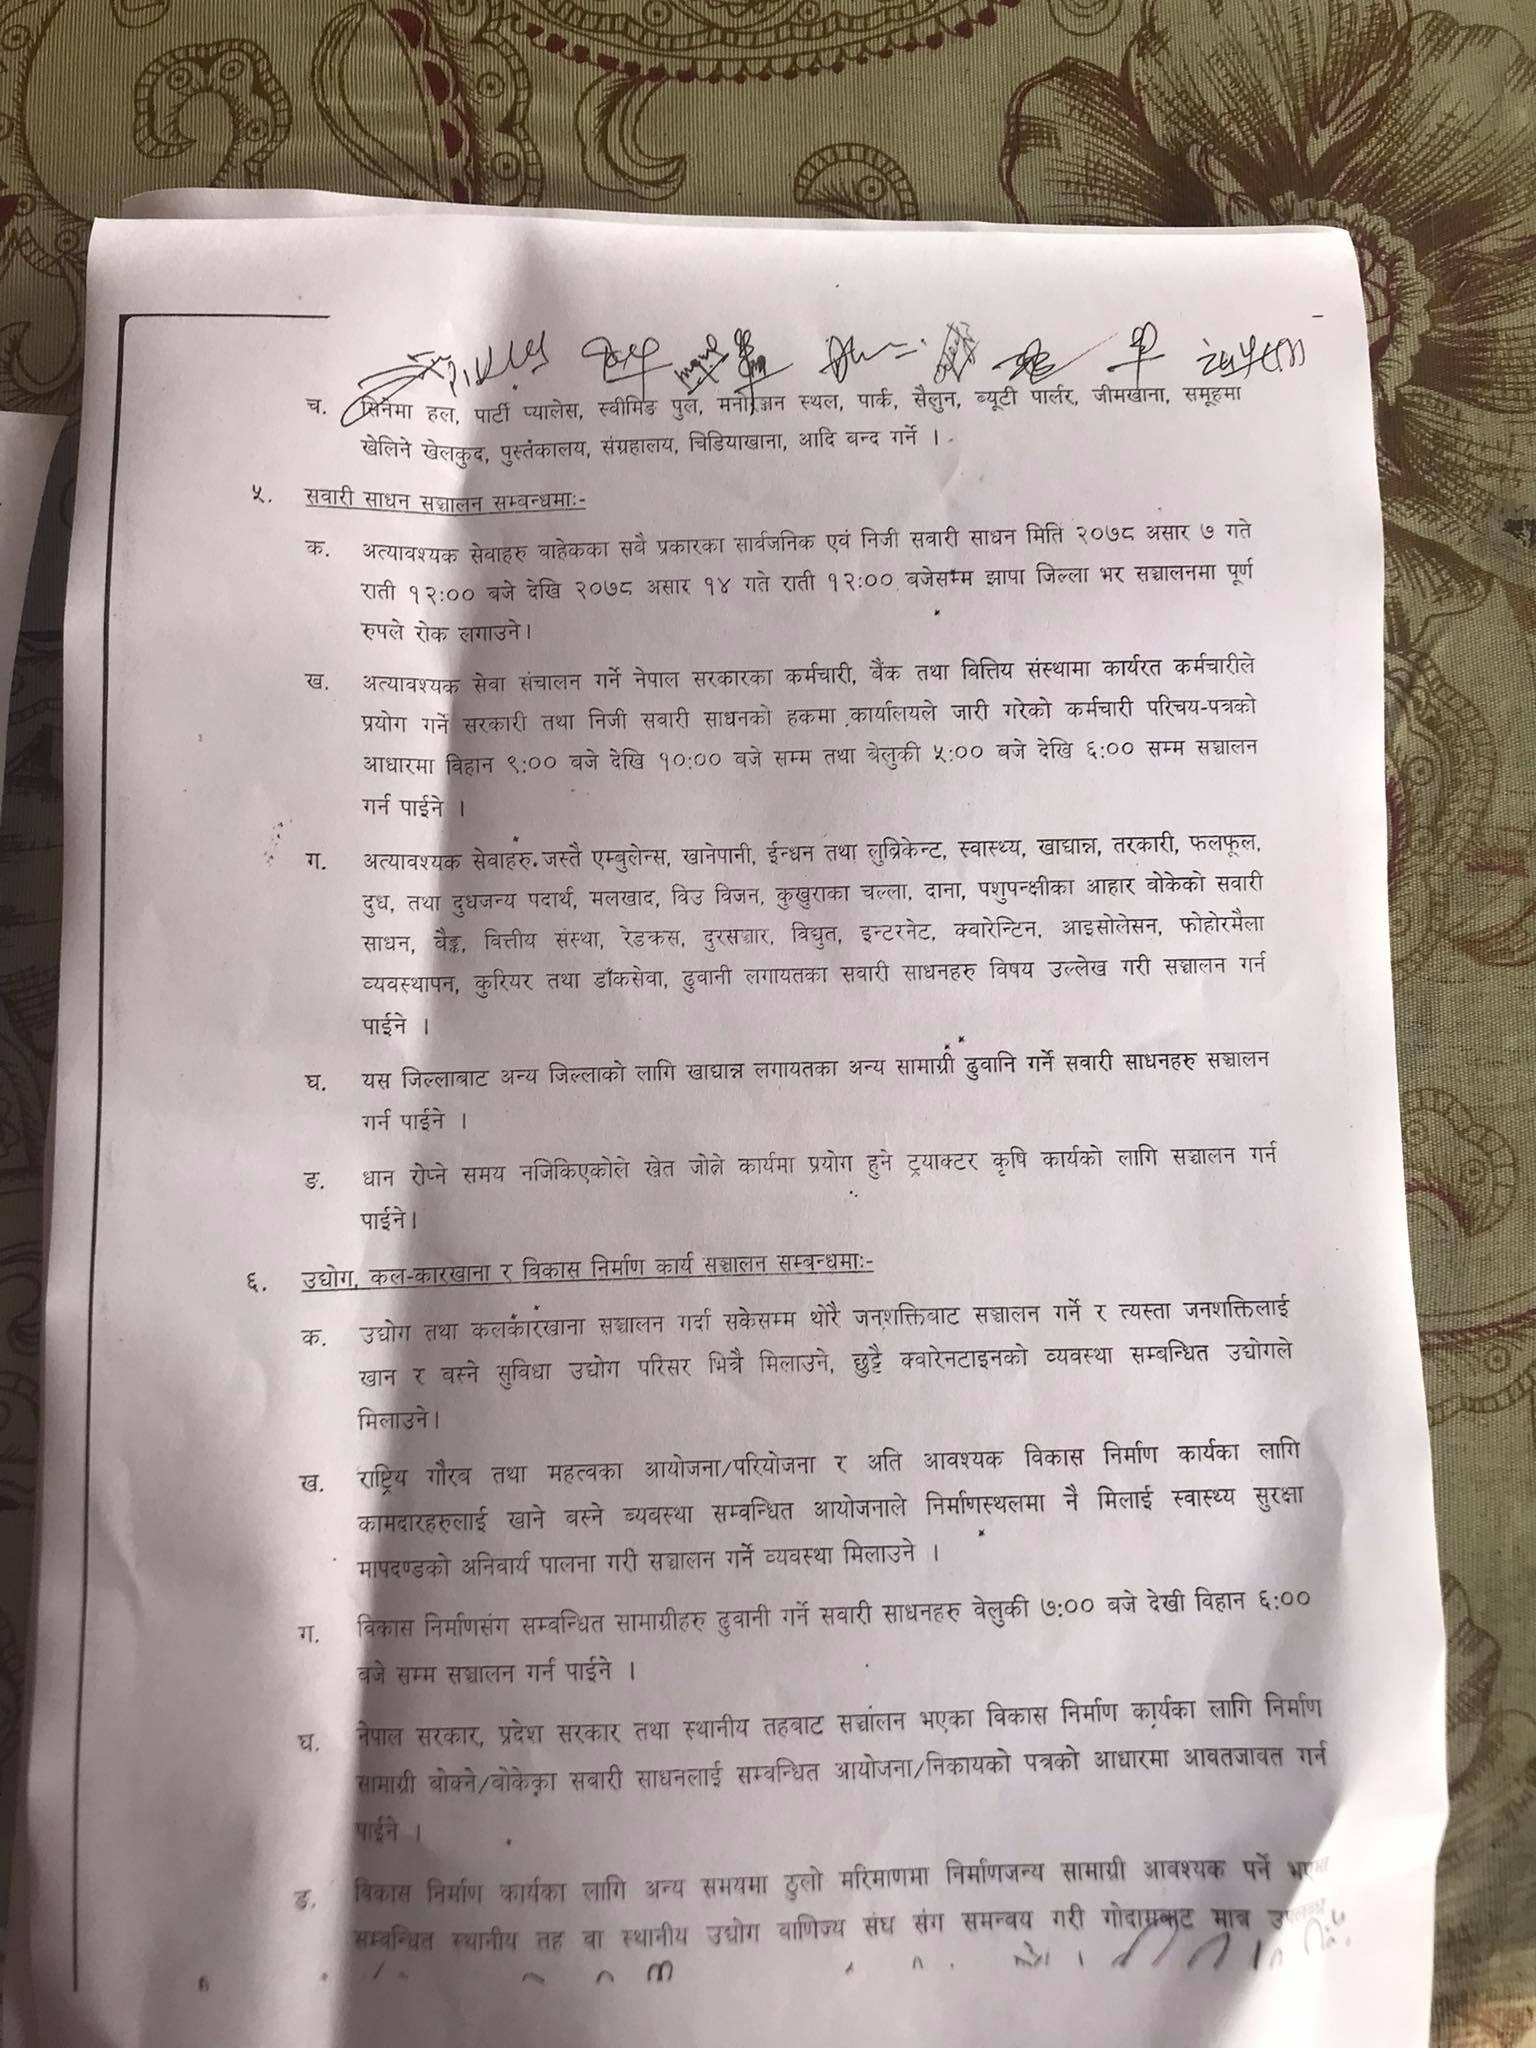 च. सिनेमा हल, पार्टी प्यालेस, स्वीमिङ पुल, मनोरञ्जन स्थल, पार्क, सैलुन, ब्यूटी पार्लर, जीमखाना, समूहमा
खेलिने खेलकुद, पुस्तकालय, संग्रहालय, चिडियाखाना, आदि वन्द गर्ने ।
५. सवारी साधन सञ्चालन सम्बन्धमाः-
क. अत्यावश्यक सेवाहरु वाहेकका सवै प्रकारका सार्वजनिक एवं निजी सवारी साधन मिति २०७८ असार ७ गते
राती १२:०० बजे देखि २०७८ असार १४ गते राती १२:०० बजेसम्म झापा जिल्ला भर सञ्चालनमा पूर्ण
रुपले रोक लगाउने।
ख. अत्यावश्यक सेवा संचालन गर्ने नेपाल सरकारका कर्मचारी, बैंक तथा वित्तिय संस्थामा कार्यरत कर्मचारीले
प्रयोग गर्ने सरकारी तथा निजी सवारी साधनको हकमा कार्यालयले जारी गरेको कर्मचारी परिचय-पत्रको
आधारमा विहान ९:०० बजे देखि १०:०० बजे सम्म तथा बेलुकी ५:०० बजे देखि ६:०० सम्म सञ्चालन
गर्न पाईने ।
ग. अत्यावश्यक सेवाहरु जस्तै एम्बुलेन्स, खानेपानी, ईन्धन तथा लुव्रिकेन्ट, स्वास्थ्य, खाद्यान्न, तरकारी, फलफूल,
दुध, तथा दुधजन्य पदार्थ, मलखाद, विउ विजन, कुखुराका चल्ला, दाना, पशुपन्क्षीका आहार वोकेको सवारी
साधन, वैङ्क, वित्तीय संस्था, रेडक्रस, दुरसञ्चार, विद्युत, इन्टरनेट, क्वारेन्टिन, आइसोलेसन, फोहोरमैला
व्यवस्थापन, कुरियर तथा डाँकसेवा, ढुवानी लगायतका सवारी साधनहरु विषय उल्लेख गरी सञ्चालन गर्न
पाईने ।
घ. यस जिल्लाबाट अन्य जिल्लाको लागि खाद्यान्न लगायतका अन्य सामाग्री ढुवानि गर्ने सवारी साधनहरु सञ्चालन
गर्न पाईने ।
ङ. धान रोप्ने समय नजिकिएकोले खेत जोत्ने कार्यमा प्रयोग हुने ट्रयाक्टर कृषि कार्यको लागि सञ्चालन गर्न
पाईने।
६. उद्योग, कल-कारखाना र विकास निर्माण कार्य सञ्चालन सम्बन्धमाः-
क. उद्योग तथा कलकारखाना सञ्चालन गर्दा सकेसम्म थोरै जनशक्तिबाट सञ्चालन गर्ने र त्यस्ता जनशक्तिलाई
खान र बस्ने सुविधा उद्योग परिसर भित्रै मिलाउने, छुट्टै क्वारेनटाइनको व्यवस्था सम्बन्धित उद्योगले
मिलाउने।
ख. राष्ट्रिय गौरव तथा महत्वका आयोजना/परियोजना र अति आवश्यक विकास निर्माण कार्यका लागि
कामदारहरुलाई खाने बस्ने व्यवस्था सम्वन्धित आयोजनाले निर्माणस्थलमा नै मिलाई स्वास्थ्य सुरक्षा
मापदण्डको अनिवार्य पालना गरी सञ्चालन गर्ने व्यवस्था मिलाउने ।
ग. विकास निर्माणसंग सम्वन्धित सामाग्रीहरु ढुवानी गर्ने सवारी साधनहरु वेलुकी ७:०० बजे देखी विहान ६:००
बजे सम्म सञ्चालन गर्न पाईने ।
घ. नेपाल सरकार, प्रदेश सरकार तथा स्थानीय तहबाट सञ्चालन भएका विकास निर्माण कार्यका लागि निर्माण
सामाग्री बोक्ने/बोकेका सवारी साधनलाई सम्वन्धित आयोजना/निकायको पत्रको आधारमा आवतजावत गर्न
पाईने ।
ङ. विकास निर्माण कार्यका लागि अन्य समयमा ठुलो मरिमाणमा निर्माणजन्य सामाग्री आवश्यक पर्ने
सम्वन्धित स्थानीय तह वा स्थानीय उद्योग वाणिज्य संघ संग समन्वय गरी गोदामबाट मात्र